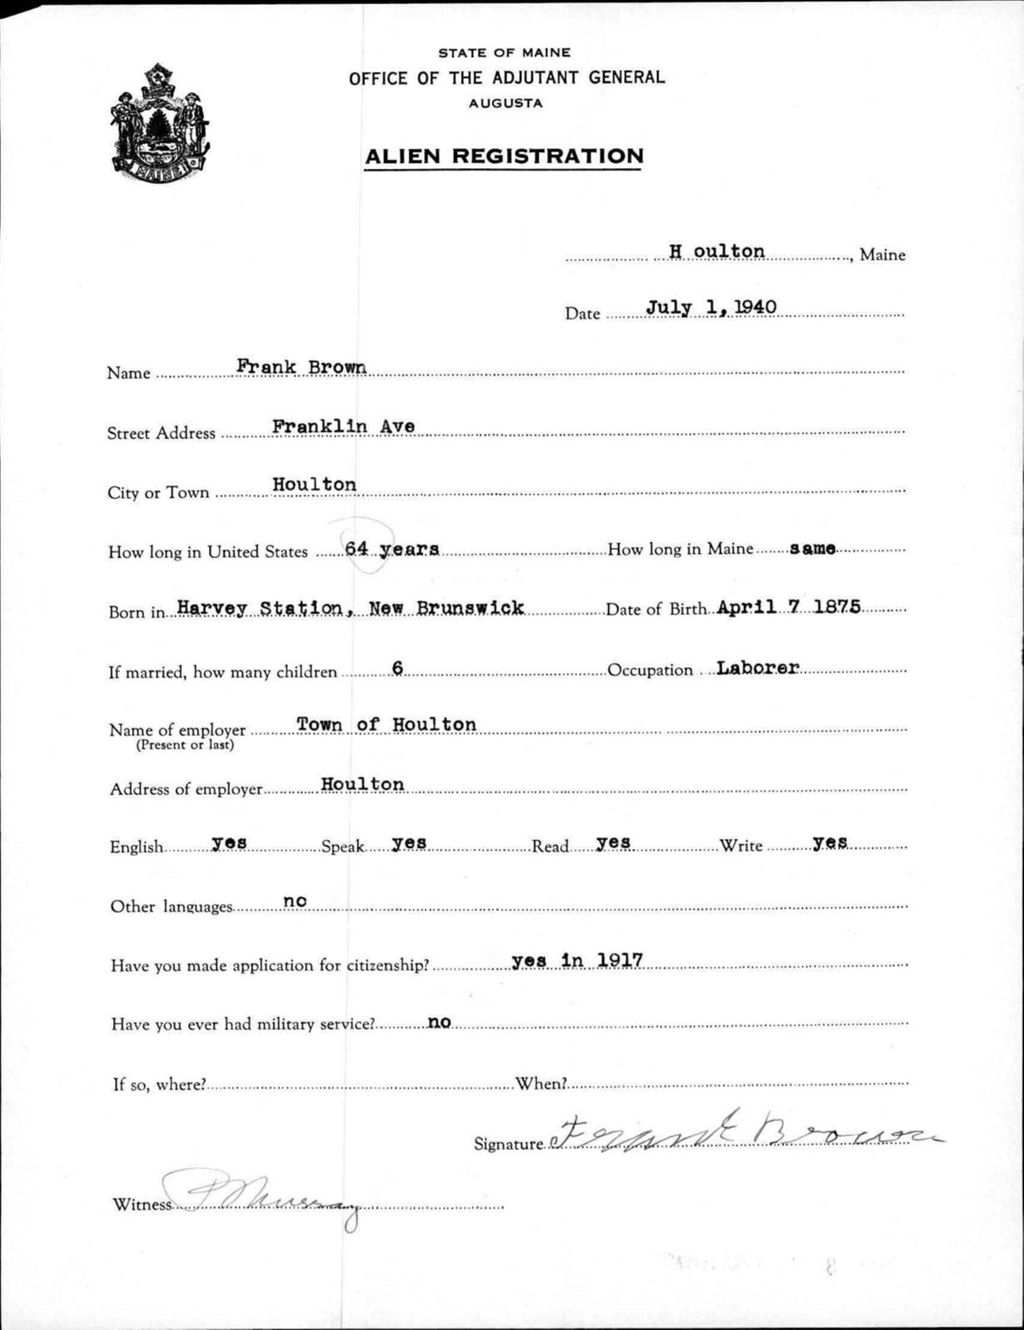 STATE OF MAINE
OFFICE OF THE ADJUTANT GENERAL
AUGUSTA
ALIEN REGISTRATION
MAINE
H oulton, Maine
Date July 1, 1940
Name Frank Brown
Street Address Franklin Ave
City or Town Houlton
How long in United States 64 years How long in Maine same
Born in Harvey Station, New Brunswick Date of Birth April 7 1875
If married, how many children 6 Occupation Laborer
Name of employer Town of Houlton
(Present or last)
Address of employer Houlton
English yes Speak yes Read yes Write yes
Other languages no
Have you made application for citizenship? yes in 1917
Have you ever had military service? no
If so, where? When?
Signature Frank Brown
Witness P Murray